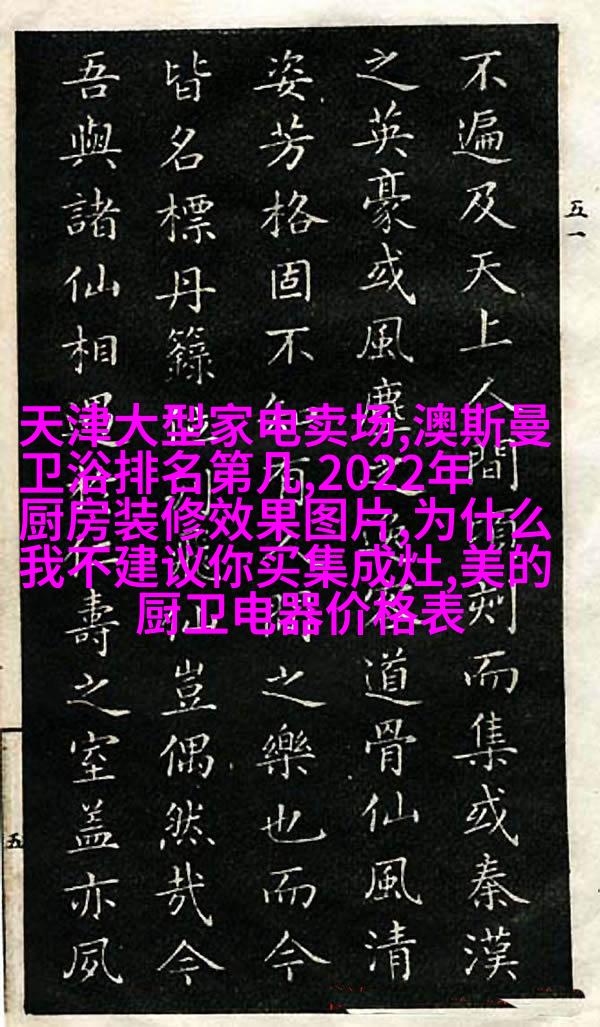 天津大型家电卖场,澳斯曼
卫浴排名第几,2022年
厨房装修效果图片,为什么
我不建议你买集成灶,美的
厨卫电器价格表
不遍及天上人間刻而集或秦漢
之英豪或風塵道骨仙風清
姿芳格固不有人間之樂也而今
皆名標丹籙仙豈偶然哉今
吾與諸仙相遇壽之室蓋亦夙
五一
五